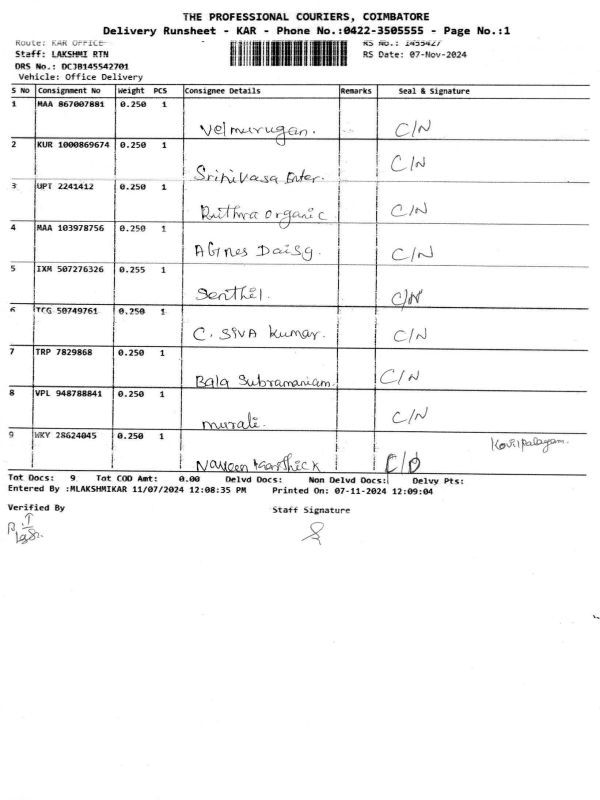 THE PROFESSIONAL COURIERS, COIMBATORE
Delivery Runsheet - KAR - Phone No.:0422-3505555 - Page No.:1
Route: KAR OFFICE RS No.: 1455427
Staff: LAKSHMI RTN RS Date: 07-Nov-2024
DRS No.: DCJB145542701
Vehicle: Office Delivery
S No Consignment No Weight PCS Consignee Details Remarks Seal & Signature
1 MAA 867007881 0.250 1
Velmurugan. C/N
2 KUR 1000869674 0.250 1
Srinivasa Enter. C/N
3 UPT 2241412 0.250 1
Ruthra organic C/N
4 MAA 103978756 0.250 1
AGNes Daisy. C/N
5 IXM 507276326 0.255 1
Senthil. C/N
6 TCG 50749761 0.250 1
C. SIVA kumar. C/N
7 TRP 7829868 0.250 1
Bala Subramaniam. C/N
8 VPL 948788841 0.250 1
murali. C/N
9 WKY 28624045 0.250 1 Kovilpalayam.
Naveen Karthick C/D
Tot Docs: 9 Tot COD Amt: 0.00 Delvd Docs: Non Delvd Docs: Delvy Pts:
Entered By :MLAKSHMIKAR 11/07/2024 12:08:35 PM Printed On: 07-11-2024 12:09:04
Verified By Staff Signature